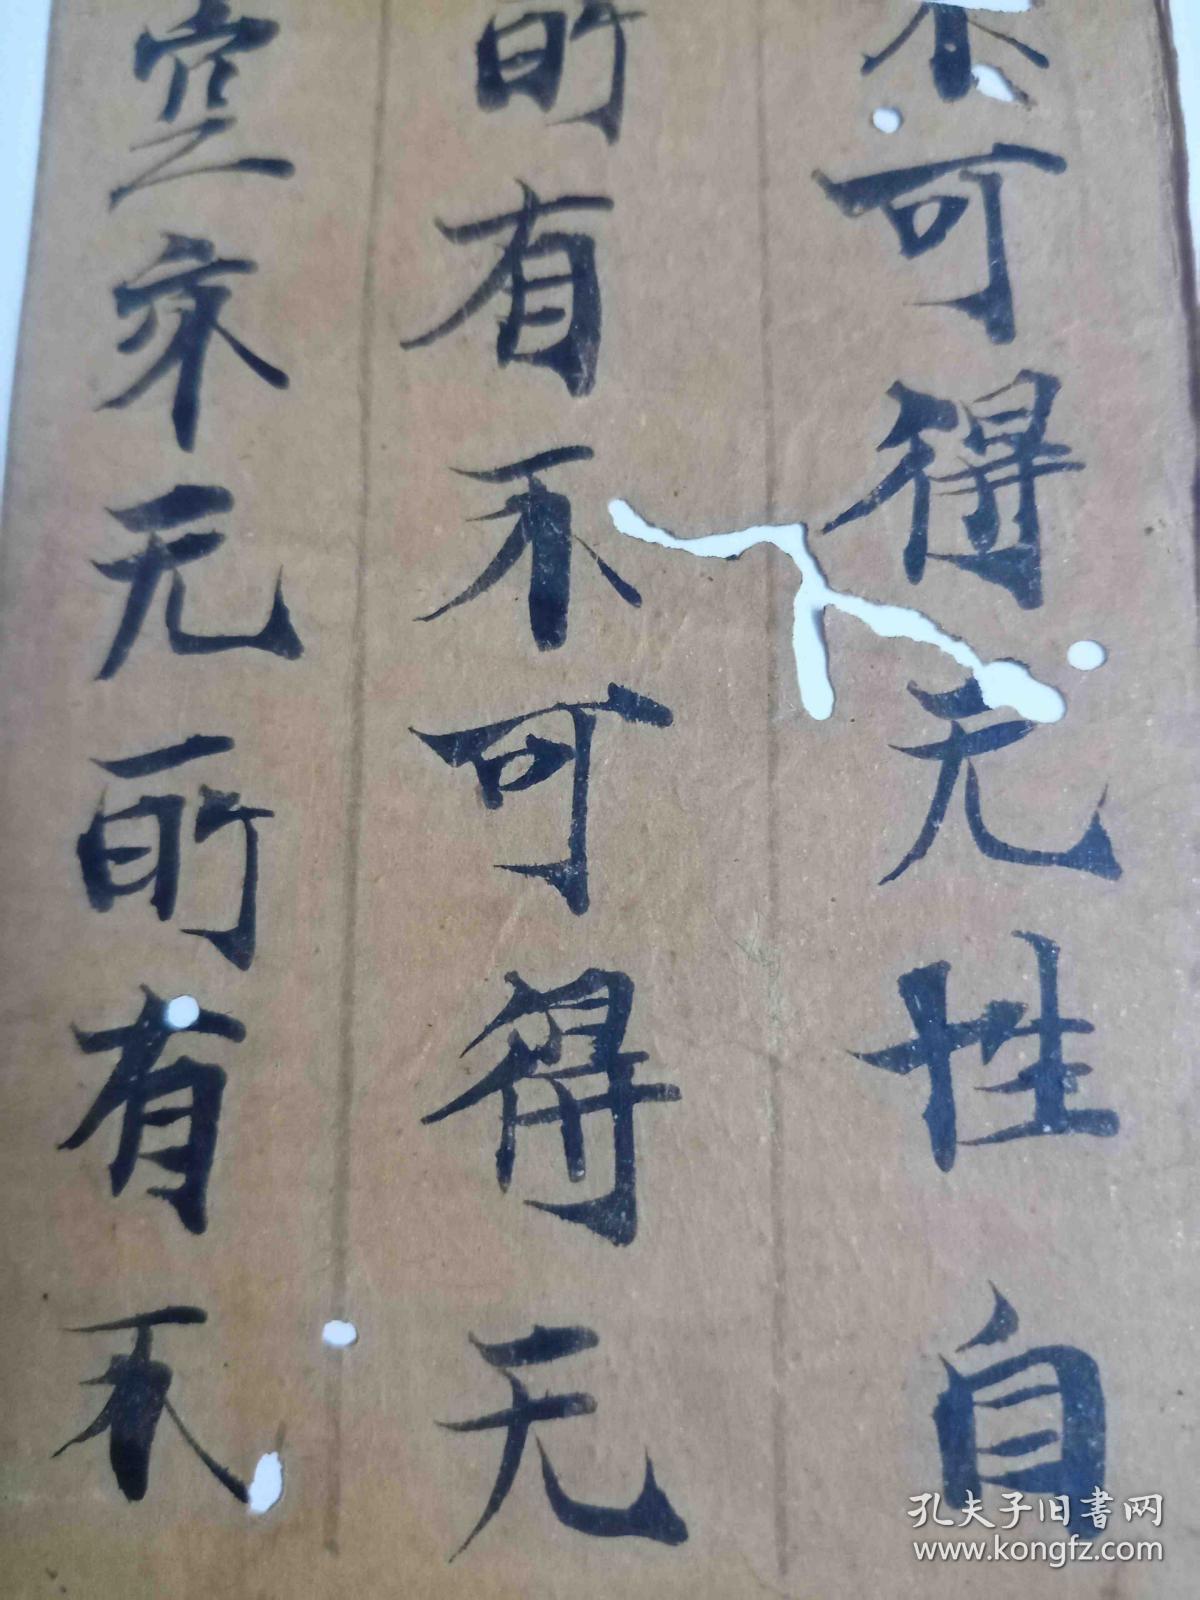 不可得无性自
所有不可得无
空亦无所有不
孔夫子旧书网
www.kongfz.com